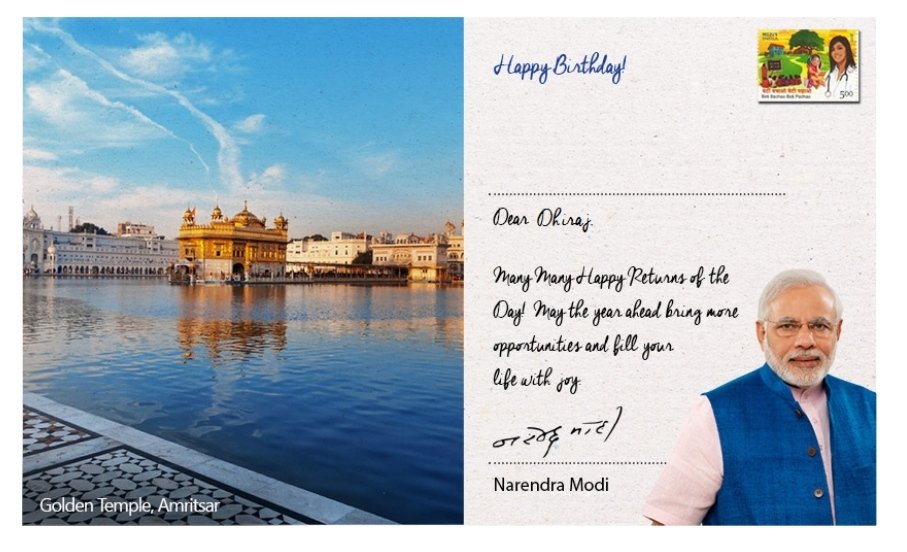 Happy Birthday!
भारत INDIA
बेटी बचाओ बेटी पढ़ाओ
Beti Bachao Beti Padhao
500
Dear Dhiraj,
Many Many Happy Returns of the
Day! May the year ahead bring more
opportunities and fill your
life with joy
नरेन्द्र मोदी
Narendra Modi
Golden Temple, Amritsar